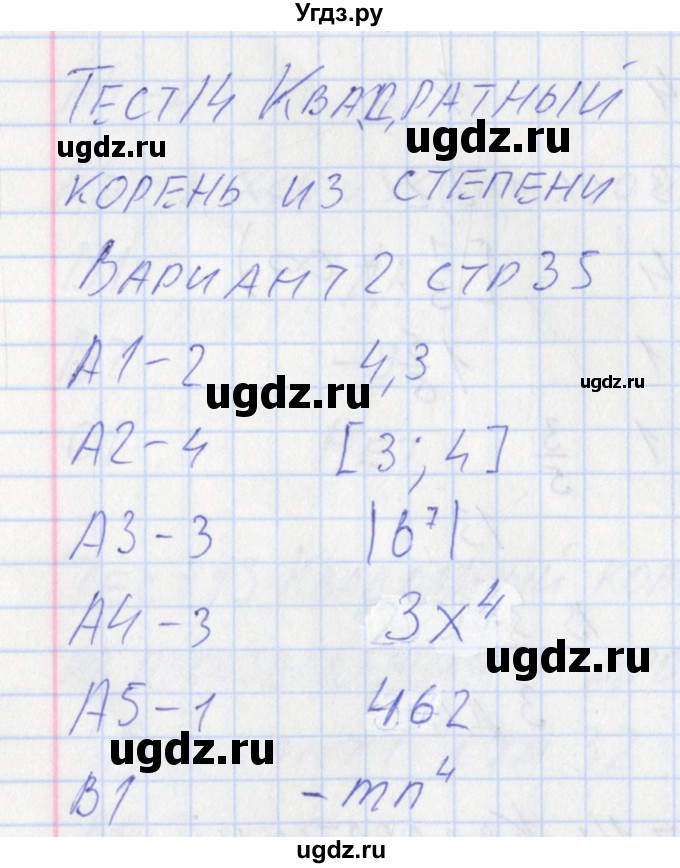 Угдз.ру
ТЕСТ 14 КВАДРАТНЫЙ
ugdz.ru ugdz.ru
КОРЕНЬ ИЗ СТЕПЕНИ
ВАРИАНТ 2 СТР 35
А1-2 4,3
ugdz.ru ugdz.ru
А2-4 [3; 4]
А3-3 |b⁷|
А4-3 3x⁴
ugdz.ru
А5-1 462
ugdz.ru
В1 -mn⁴
ugdz.ru